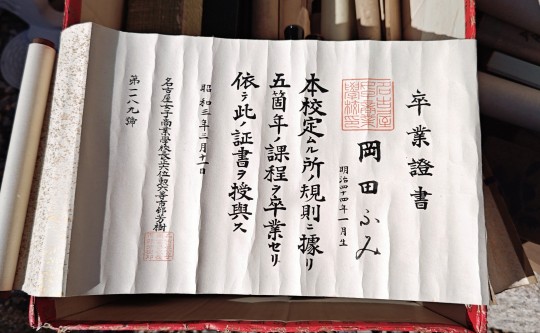 卒業證書
岡田ふみ
明治四十四年一月生
本校定ムル所ノ規則ニ據リ
五箇年ノ課程ヲ卒業セリ
依テ此ノ証書ヲ授與ス
昭和三年三月十一日
名古屋女子商業学校長六位勲八等市邨芳樹
第一一八九號